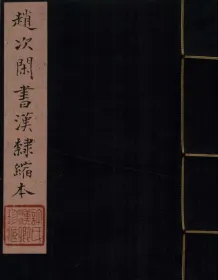 趙次閑書漢隸縮本